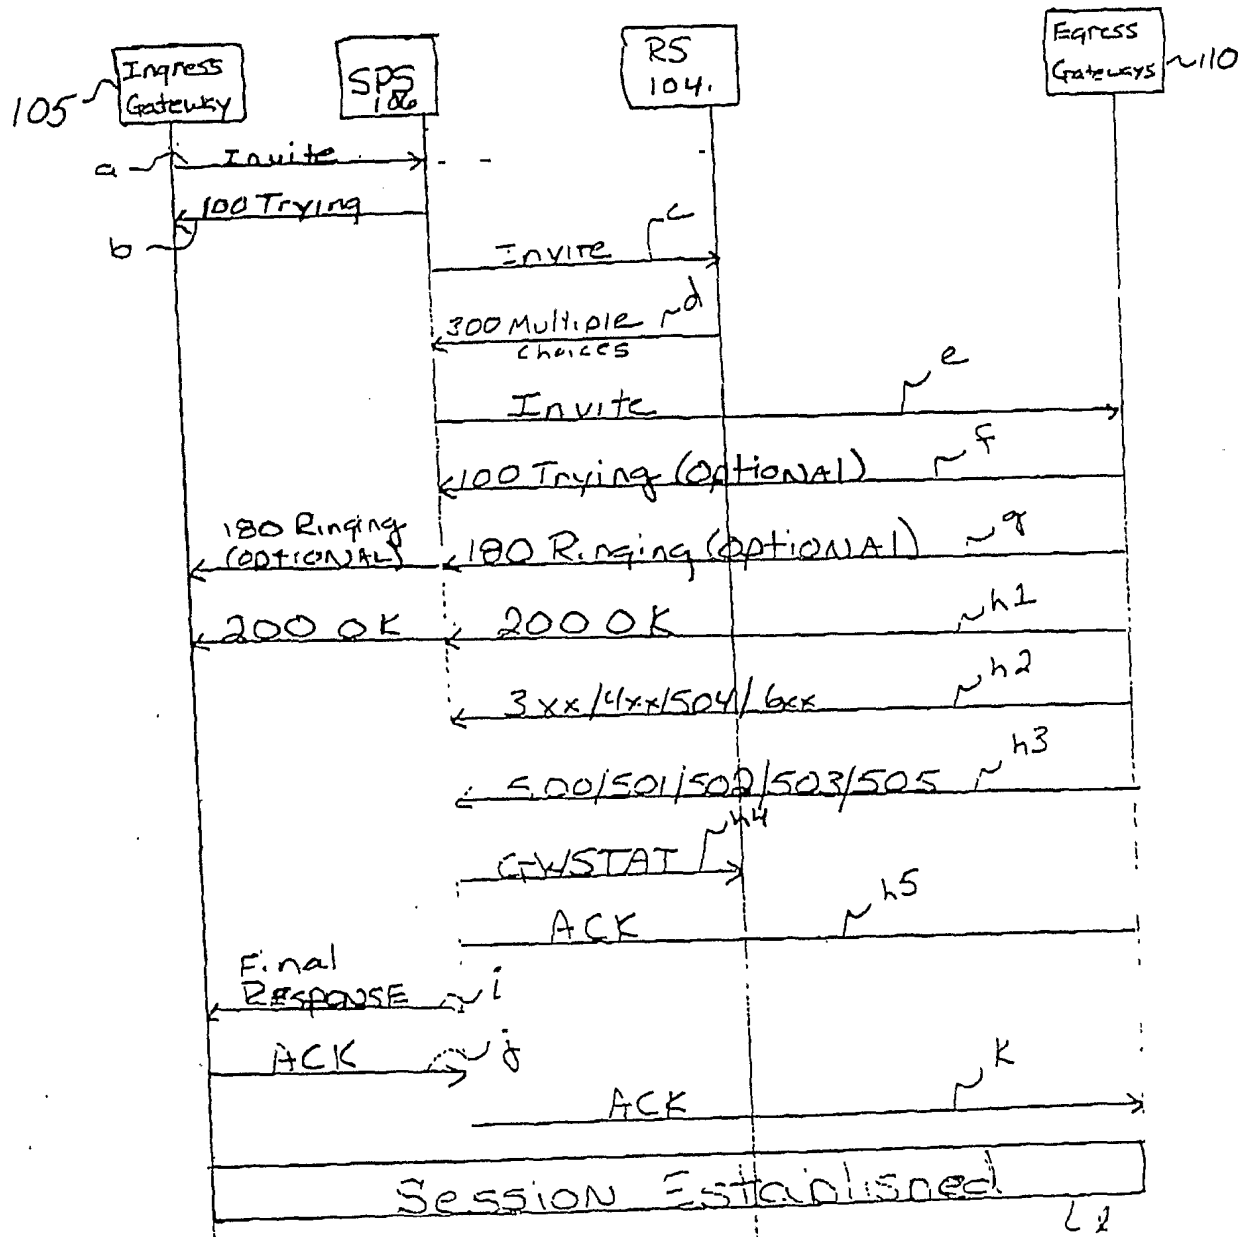 Ingress
Gateway
105
SPS
106
RS
104.
Egress
Gateways
110
a
Invite
100 Trying
b
Invite
c
300 Multiple
choices
d
Invite
e
100 Trying (OptiONAl)
f
180 Ringing
(OPTIONAL)
180 Ringing (OptiONAl)
g
200 OK
200 OK
h1
3xx/4xx/504/6xx
h2
500/501/502/503/505
h3
GWSTAT
h4
ACK
h5
Final
RESPONSE
i
ACK
j
ACK
k
Session Established
l